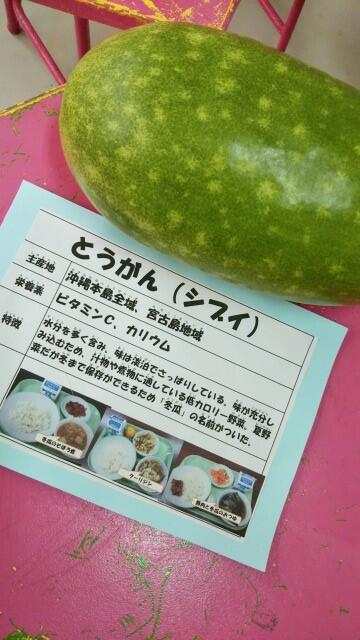 とうがん（シブイ）
主産地
沖縄本島全域、宮古島地域
栄養素
ビタミンC、カリウム
特徴
水分を多く含み、味は淡泊でさっぱりしている。味が充分し
み込むため、汁物や煮物に適している低カロリー野菜。夏野
菜だが冬まで保存ができるため「冬瓜」の名前がついた。
冬瓜のそぼろ煮
クーリジシ
豚肉と冬瓜のみつゆ